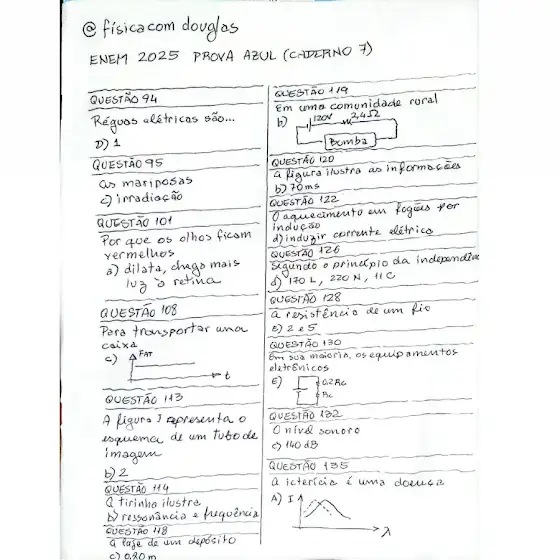 @ físicacom douglas
ENEM 2025 PROVA AZUL (CADERNO 7)
QUESTÃO 94
Réguas elétricas são...
D) 1
QUESTÃO 95
as mariposas
c) irradiação
QUESTÃO 101
Por que os olhos ficam
vermelhos
a) dilata, chega mais
luz à retina
QUESTÃO 108
Para transportar uma
caixa
c) FAT
t
QUESTÃO 113
A figura 1 apresenta o
esquema de um tubo de
imagem
b) 2
QUESTÃO 114
a tirinha ilustra
b) ressonância e frequência
QUESTÃO 118
a laje de um depósito
c) 0,20 m
QUESTÃO 119
Em uma comunidade rural
b) 120V 2,4Ω
Bomba
QUESTÃO 120
a figura ilustra as informações
b) 70ms
QUESTÃO 122
O aquecimento em fogões por
indução
d) induzir corrente elétrica
QUESTÃO 126
Segundo o princípio da independên
d) 170 L, 220 N, 11 C
QUESTÃO 128
a resistência de um fio
b) 2 e 5
QUESTÃO 130
Em sua maioria, os equipamentos
eletrônicos
E) 0,2Rc
Rc
QUESTÃO 132
O nível sonoro
c) 140 dB
QUESTÃO 135
a icterícia é uma doença
A) I
λ